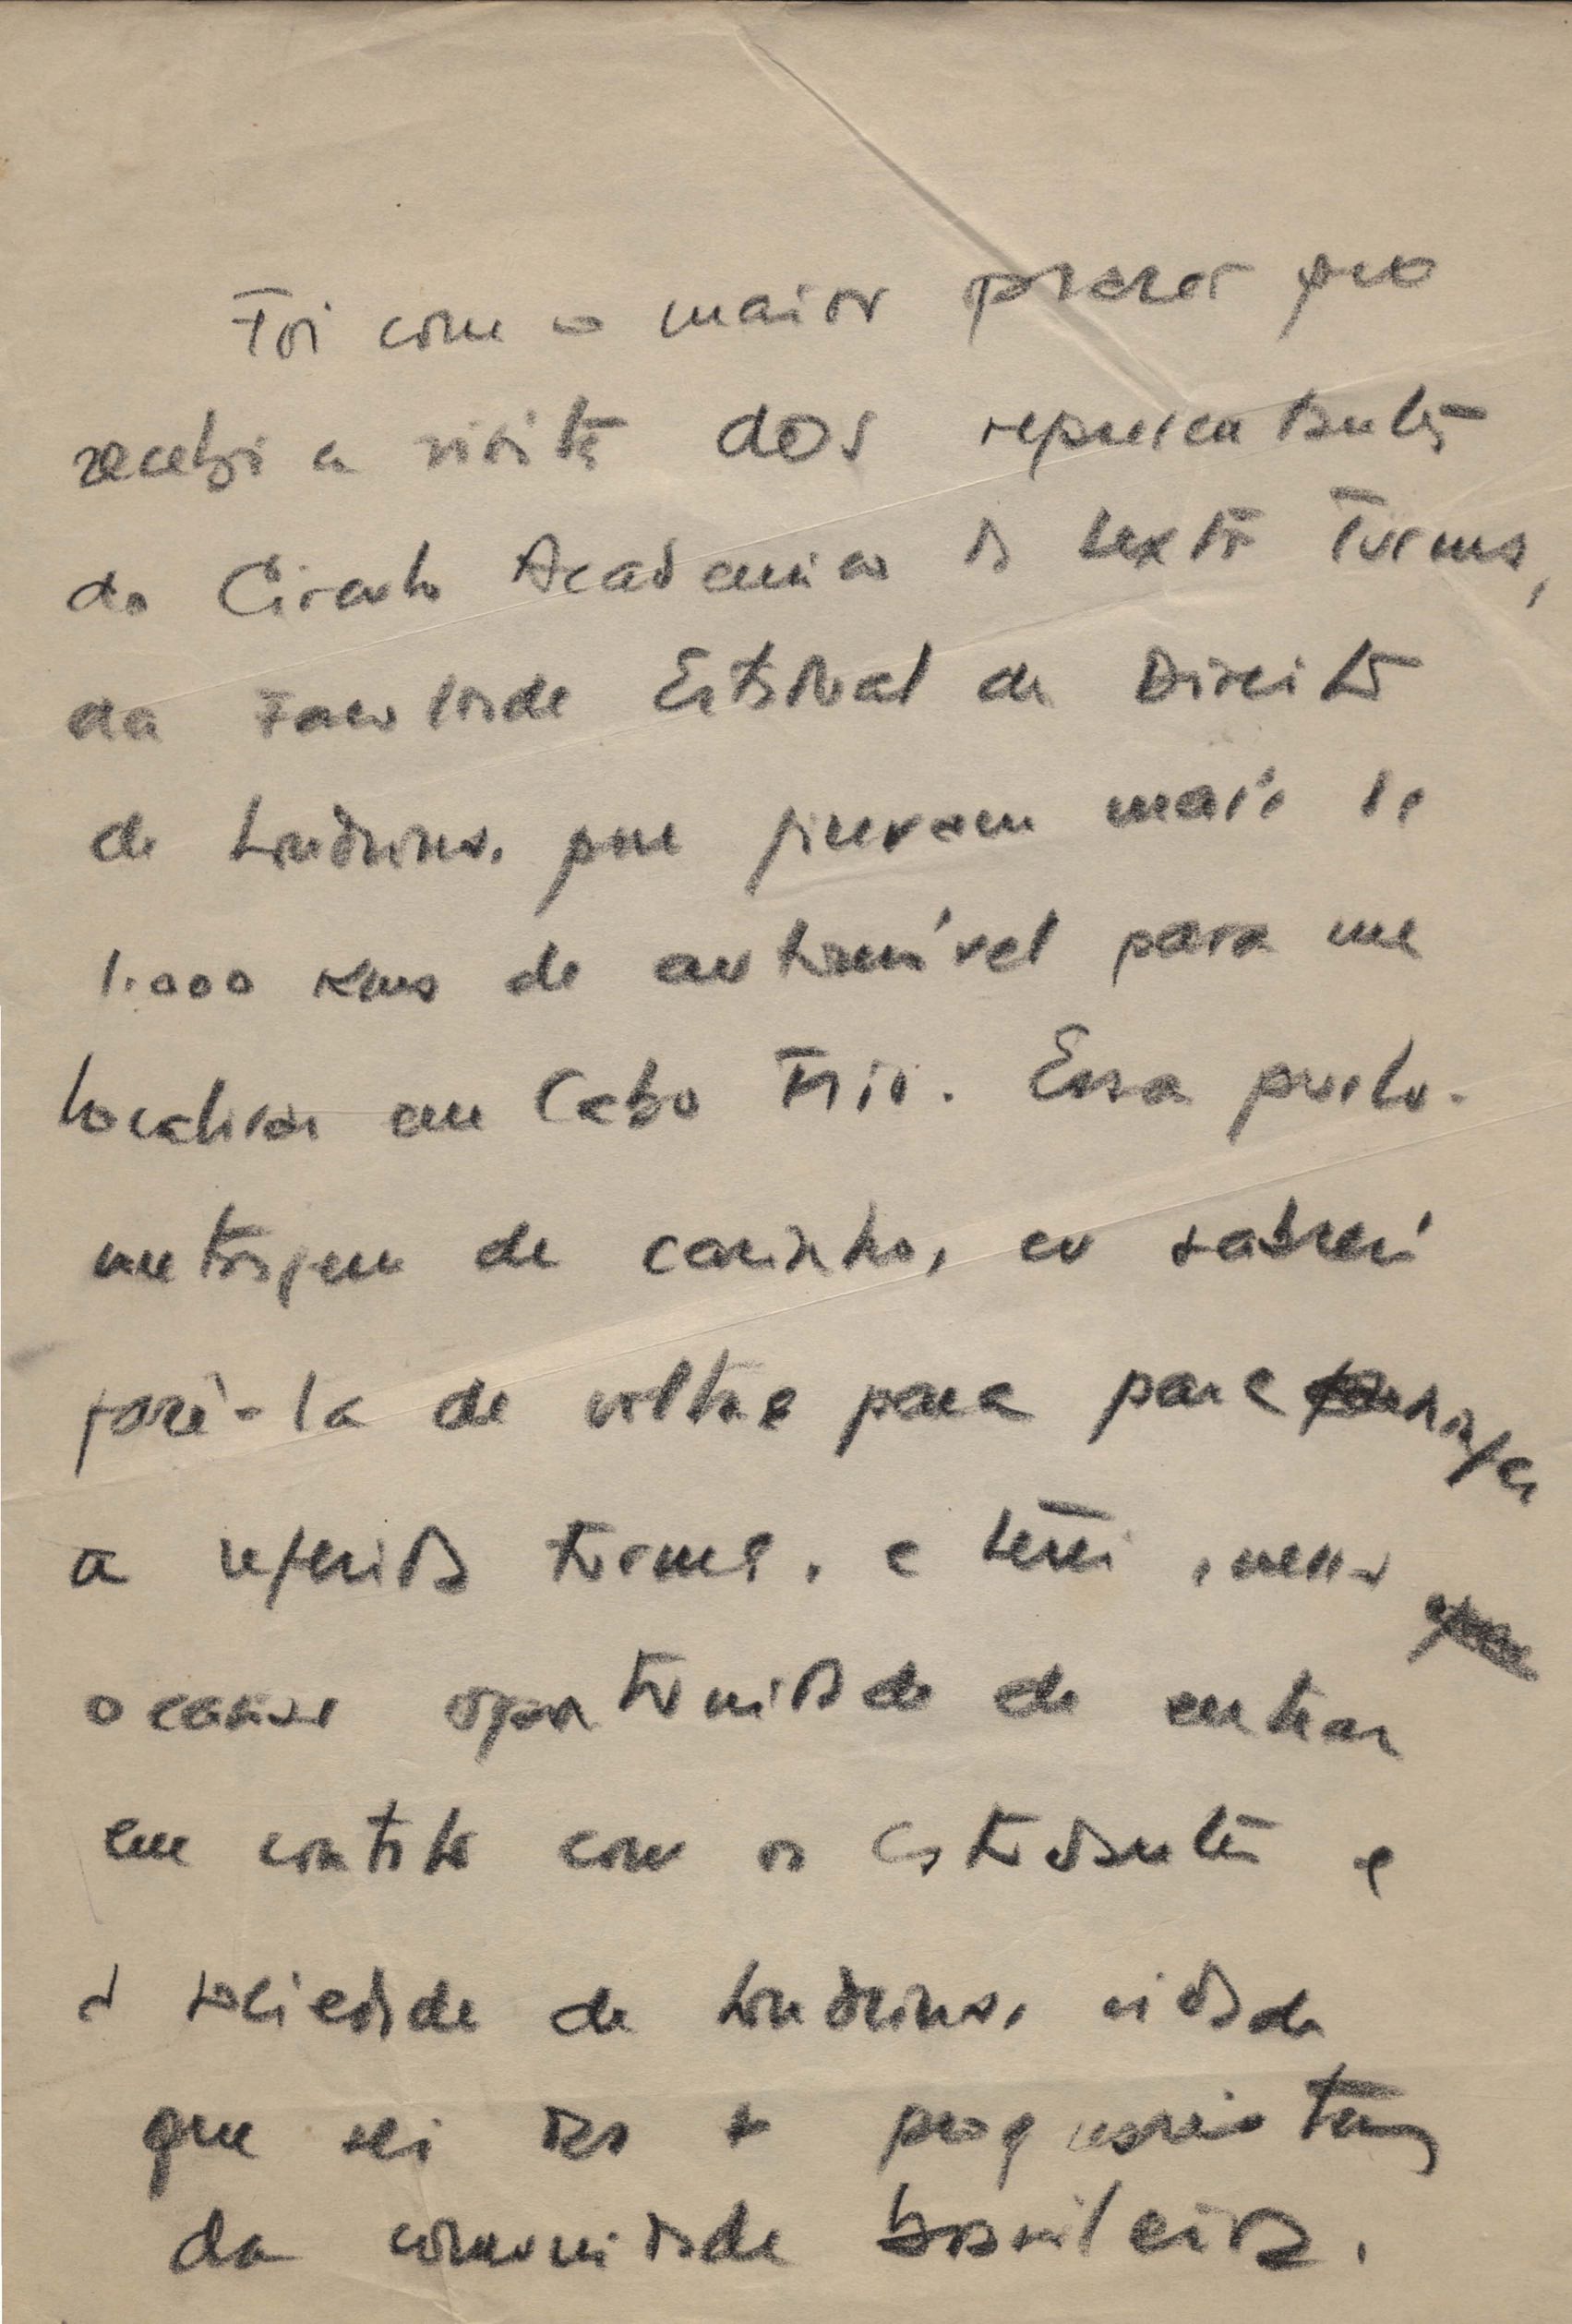 Foi com o maior prazer que
recebi a visita dos representantes
do Circulo Academico da sexta turma,
da Faculdade Estadual de Direito
de Londrina, que fizeram mais de
1.000 kms de automóvel para me
localisar em Cabo Frio. Essa quilo-
metragem de carinho, eu saberei
fazê-la de volta para para
a referida turma, e terei, nessa
ocasião oportunidade de entrar
em contato com os estudantes e
a sociedade de Londrina, cidade
que sei das + progressistas
da comunidade brasileira.